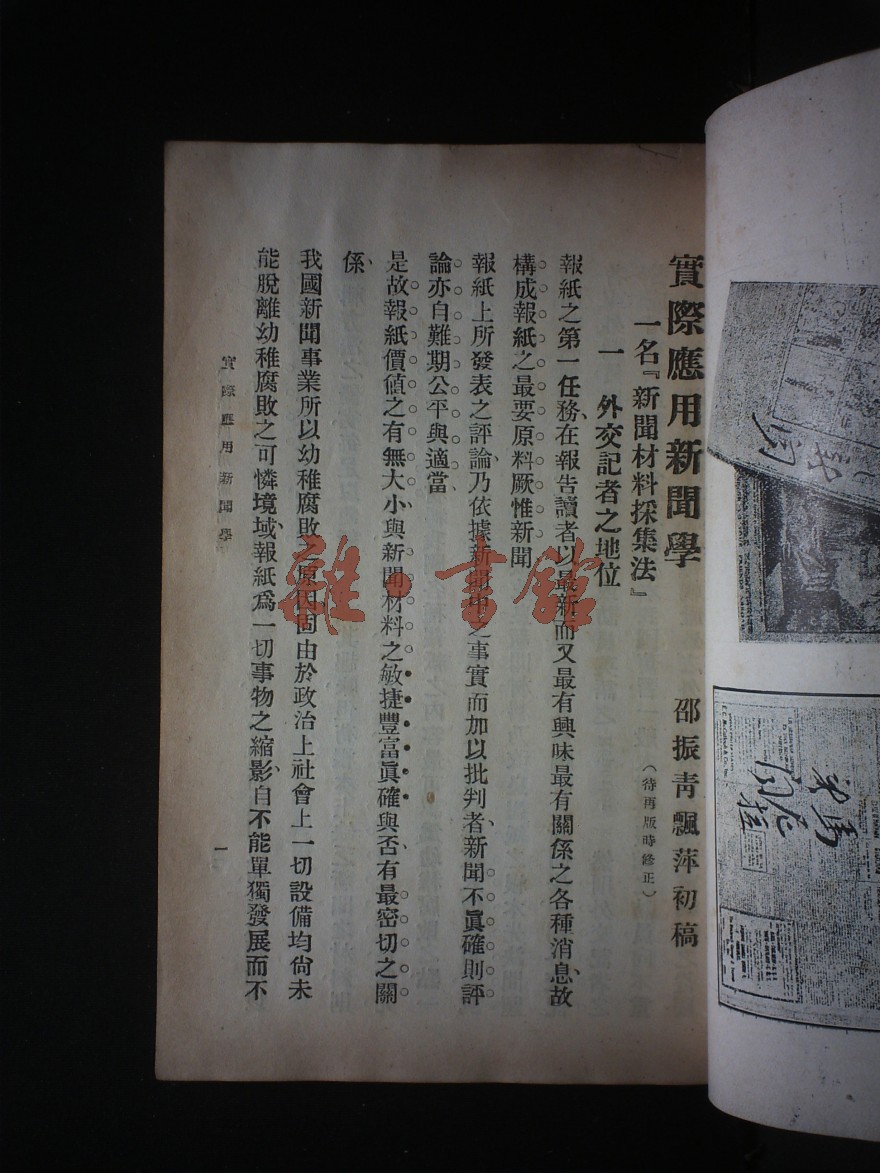 實際應用新聞學
邵振青飄萍初稿
一名『新聞材料採集法』
（待再版時修正）
一　外交記者之地位
報紙之第一任務、在報告讀者以最新而又最有興味最有關係之各種消息、故
構成報紙之最要原料厥惟新聞
報紙上所發表之評論乃依據新聞中之事實而加以批判者、新聞不眞確則評
論亦自難期公平與適當
是故報紙價値之有無大小與新聞材料之敏捷豐富眞確與否有最密切之關
係、
我國新聞事業所以幼稚腐敗之原因固由於政治上社會上一切設備均尙未
能脫離幼稚腐敗之可憐境域、報紙爲一切事物之縮影、自不能單獨發展而不
實際應用新聞學
一
雜書館